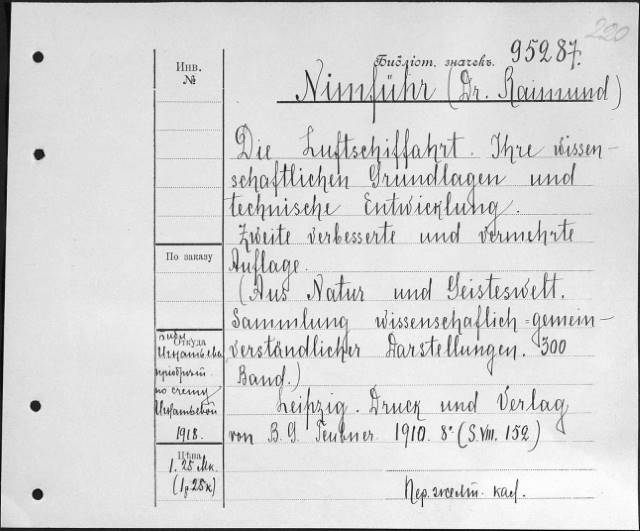 220
Библіот. значекъ. 95287.
Инв.
№
Nimführ (Dr. Raimund)
Die Luftschiffahrt. Ihre wissen-
schaftlichen Grundlagen und
technische Entwicklung.
Zweite verbesserte und vermehrte
Auflage.
(Aus Natur und Geisteswelt.
Sammlung wissenschaflich-gemein-
verständlicher Darstellungen. 300
Band.)
Leipzig. Druck und Verlag
von B. G. Teubner. 1910. 8° (S. VIII. 152.)
По заказу
Откуда
по счету
1918.
Цѣна
1. 25 Мк.
(1р. 25к)
Пер. желт. кал.